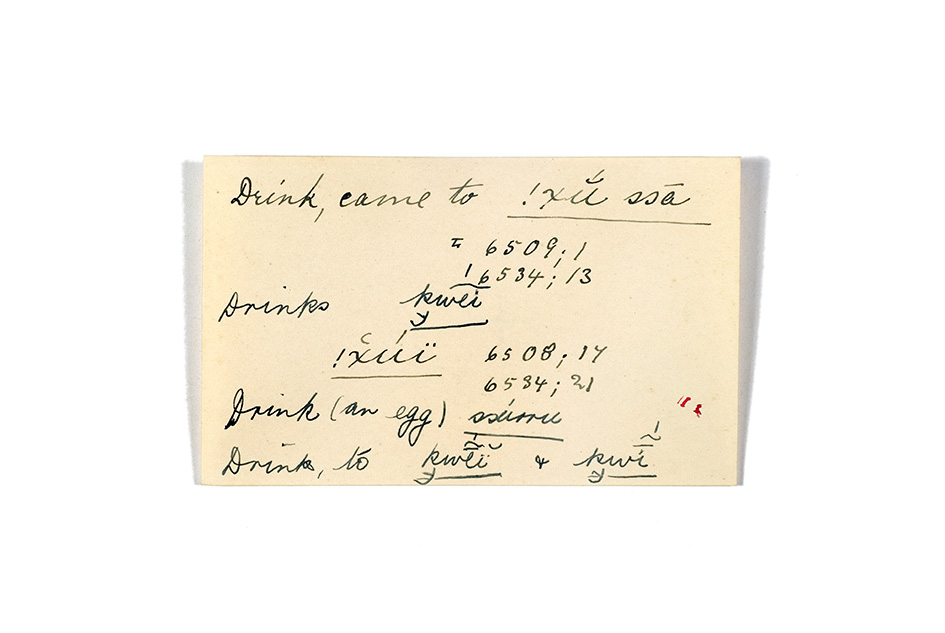 Drink, came to !xṹ ssā
6509; 1
6534; 13
Drinks kwéi
!xúï 6508; 17
6534; 21
Drink (an egg) ssúrru
Drinks, to kwéï & kwí